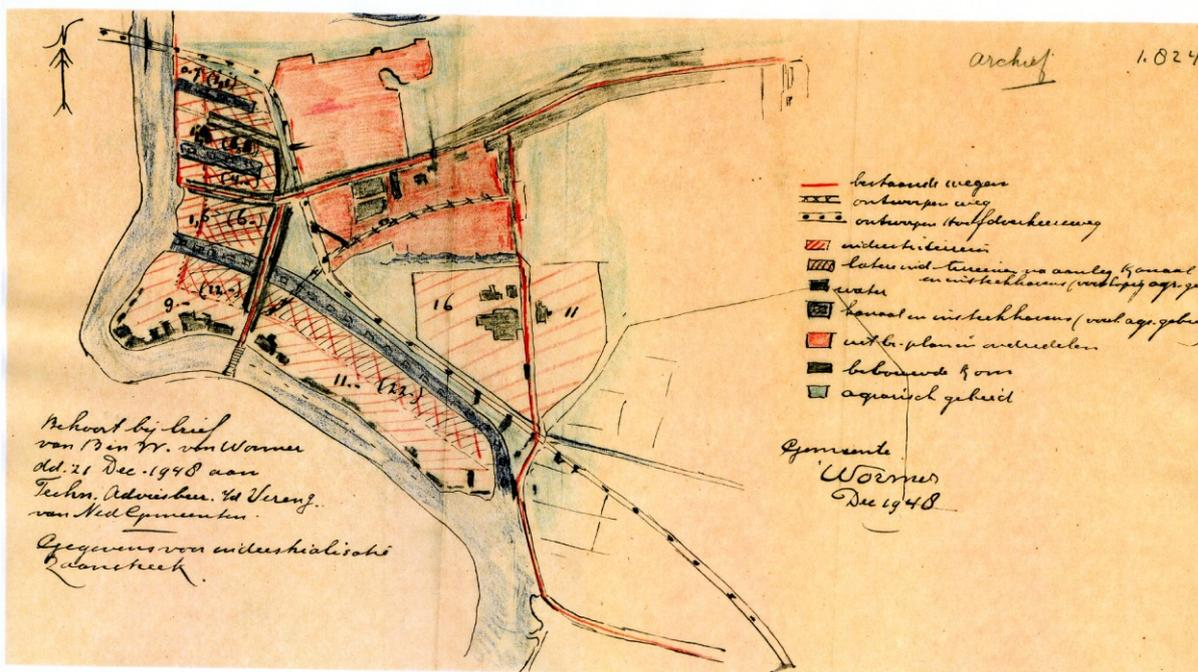 N
archief
1.824
0.7 (2,5)
(4.-)
1,5 (6.-)
9.- (12.-)
16
11
11.- (22.-)
bestaande wegen
ontworpen weg
ontworpen Hoofdverkeersweg
industrieterrein
later ind-terreinen na aanleg Kanaal
en insteekhavens (voorlopig agr. ge
water
kanaal en insteekhavens (voorl. agr. gebie
uitbr. plan in onderdelen
bebouwde kom
agrarisch gebied
Behoort bij brief
van B en W. van Wormer
dd. 21 Dec. 1948 aan
Techn. Adviesbur. v/d Vereng.
van Ned Gemeenten.
Gegevens voor industrialisatie
Zaanstreek.
Gemeente
Wormer
Dec 1948